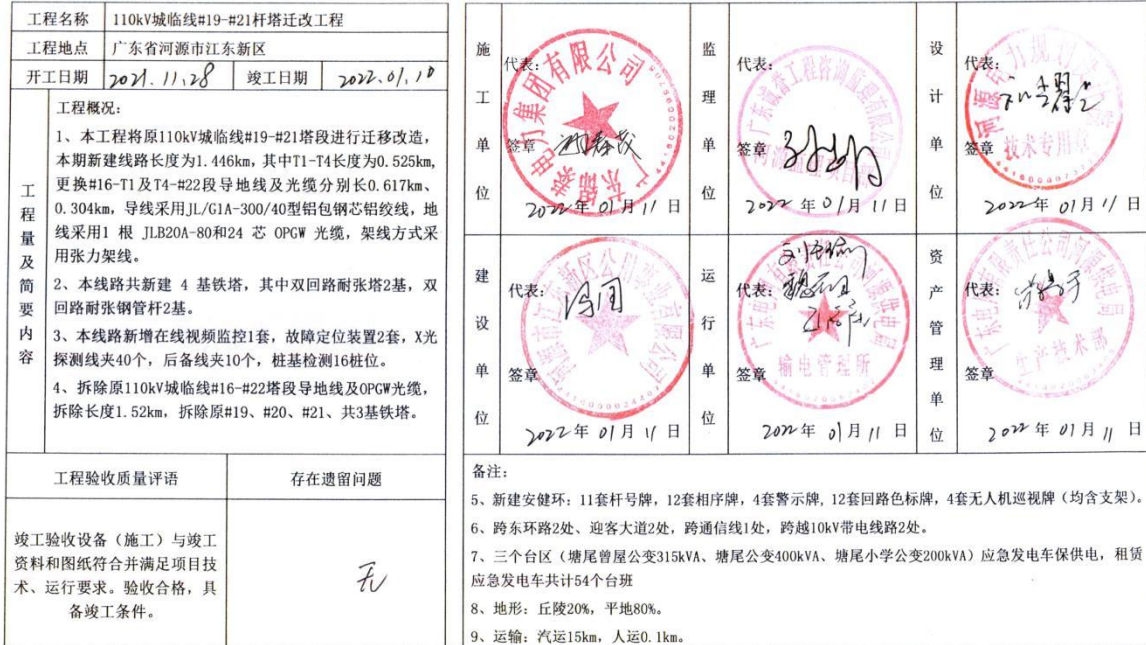 工程名称 110kV城临线#19-#21杆塔迁改工程
工程地点 广东省河源市江东新区
开工日期 2021.11.28 竣工日期 2022.01.10
工程量及简要内容
工程概况:
1、本工程将原110kV城临线#19-#21塔段进行迁移改造，
本期新建线路长度为1.446km，其中T1-T4长度为0.525km,
更换#16-T1及T4-#22段导地线及光缆分别长0.617km、
0.304km，导线采用JL/G1A-300/40型铝包钢芯铝绞线，地
线采用1 根 JLB20A-80和24 芯 OPGW 光缆，架线方式采
用张力架线。
2、本线路共新建 4 基铁塔，其中双回路耐张塔2基，双
回路耐张钢管杆2基。
3、本线路新增在线视频监控1套，故障定位装置2套，X光
探测线夹40个，后备线夹10个，桩基检测16桩位。
4、拆除原110kV城临线#16-#22塔段导地线及OPGW光缆，
拆除长度1.52km，拆除原#19、#20、#21、共3基铁塔。
工程验收质量评语 存在遗留问题
竣工验收设备（施工）与竣工
资料和图纸符合并满足项目技
术、运行要求。验收合格，具
备竣工条件。
无
施工单位
代表:
签章
电力集团有限公司
2022年 01月 11 日
监理单位
代表:
签章
2022 年 01月 11 日
设计单位
代表:
技术专用章
2022年 01月 11 日
建设单位
代表:
签章
2022年 01月 11 日
运行单位
代表:
签章
输电管理所
2022年 01月 11 日
资产管理单位
代表:
签章
生产技术部
2022年 01月 11 日
备注:
5、新建安健环：11套杆号牌，12套相序牌，4套警示牌, 12套回路色标牌，4套无人机巡视牌（均含支架）。
6、跨东环路2处、迎客大道2处，跨通信线1处，跨越10kV带电线路2处。
7、三个台区（塘尾曾屋公变315kVA、塘尾公变400kVA、塘尾小学公变200kVA）应急发电车保供电，租赁
应急发电车共计54个台班
8、地形：丘陵20%，平地80%。
9、运输：汽运15km，人运0.1km。